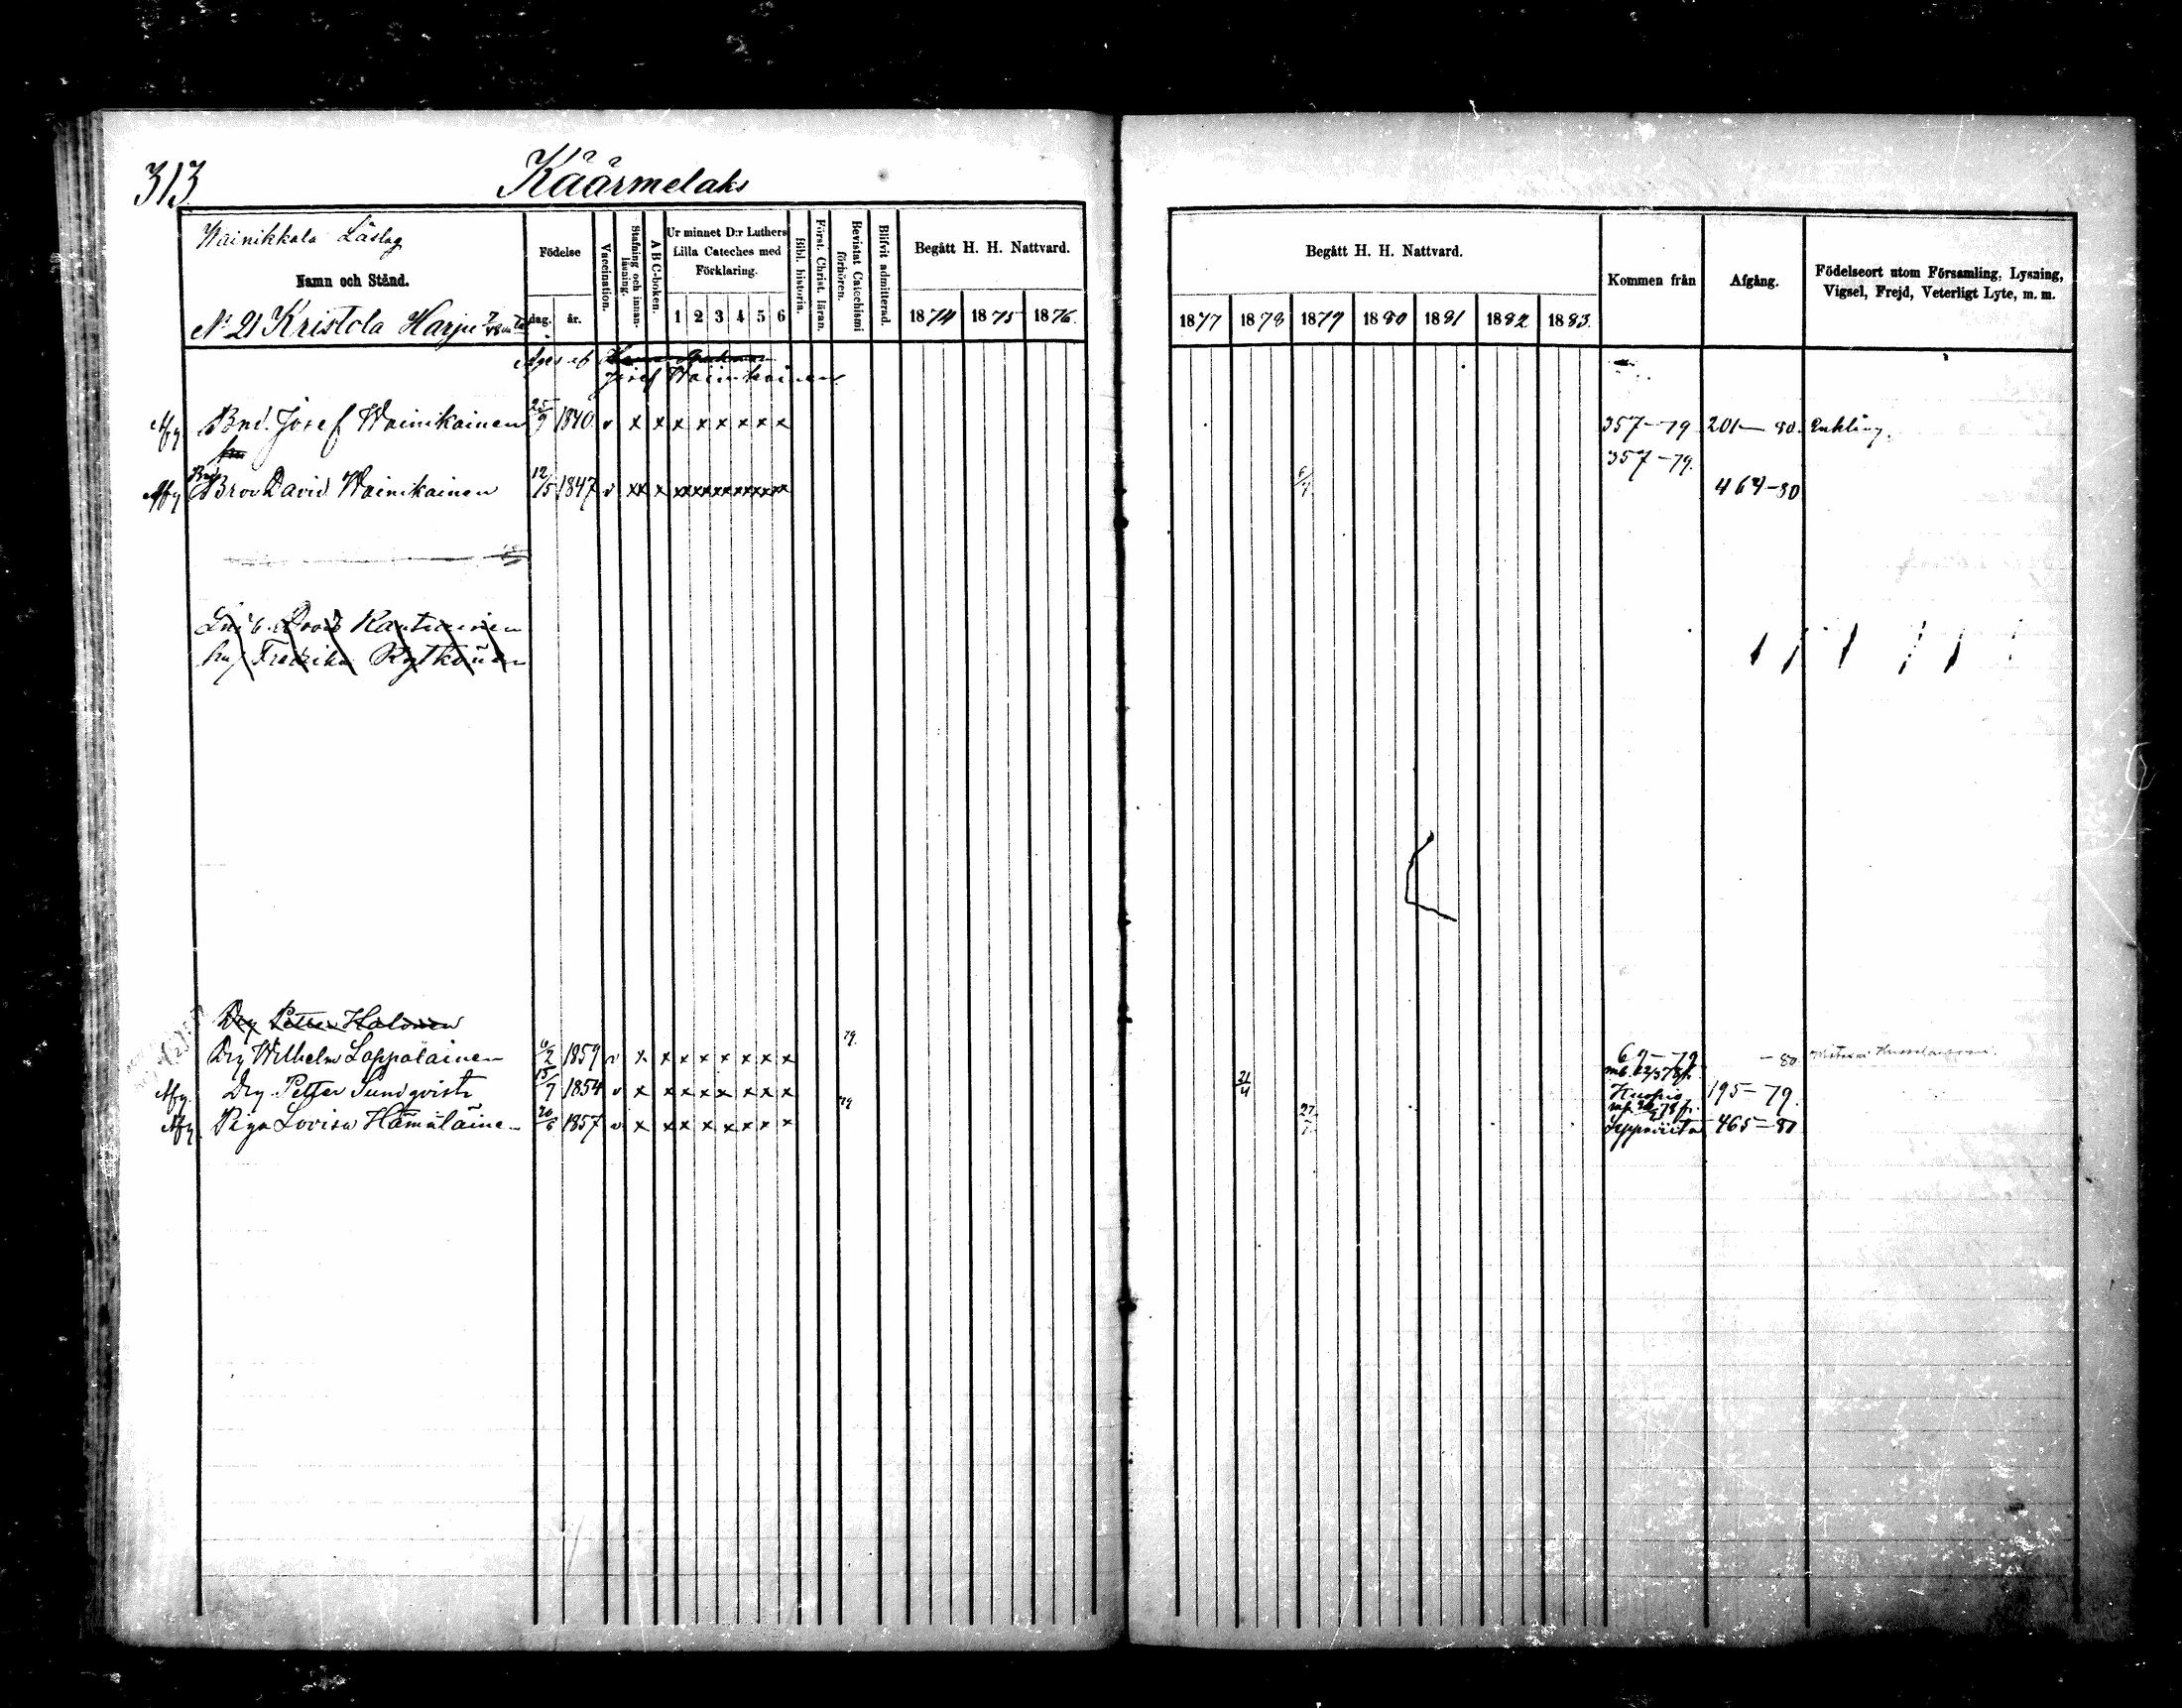 313
Käärmelaks
Wainikkala Läslag
Namn och Stånd.
Födelse
dag. år.
Vaccination.
Stafning och innanläsning.
A B C-boken.
Ur minnet D:r Luthers Lilla Cateches med Förklaring.
1 2 3 4 5 6
Bibl. historia.
Först. Christ. läran.
Bevistat Catechismi förhören.
Blifvit admitterad.
Begått H. H. Nattvard.
1874 1875 1876.
Begått H. H. Nattvard.
1877 1878 1879 1880 1881 1882 1883.
Kommen från
Afgång.
Födelseort utom Församling, Lysning, Vigsel, Frejd, Veterligt Lyte, m. m.
No 21 Kristola Harju
Äges af
Josef Wainikainen
Afg. Bnd. Josef Wainikainen 25/9 1840. v x x x x x x x x 357-79 201-80. Enkling.
Afg Bnd Brod David Wainikainen 12/5 1847 v xx x 6/7 357-79. 464-80
David Kautiainen
hu Fredrika Rytkönen
Drg Petter Halonen
Drg Wilhelm Lappalainen 6/2 1859 v x x x x x x x x 79. 69-79 -80
Afg. Drg Petter Sundqvist 15/7 1854 v x x x x x x x x 21/4 Kuopio 195-79.
Afg. Piga Lovisa Hämäläinen 20/6 1857 v x x x x x x x x 79 27/7 Leppävirta 465-80